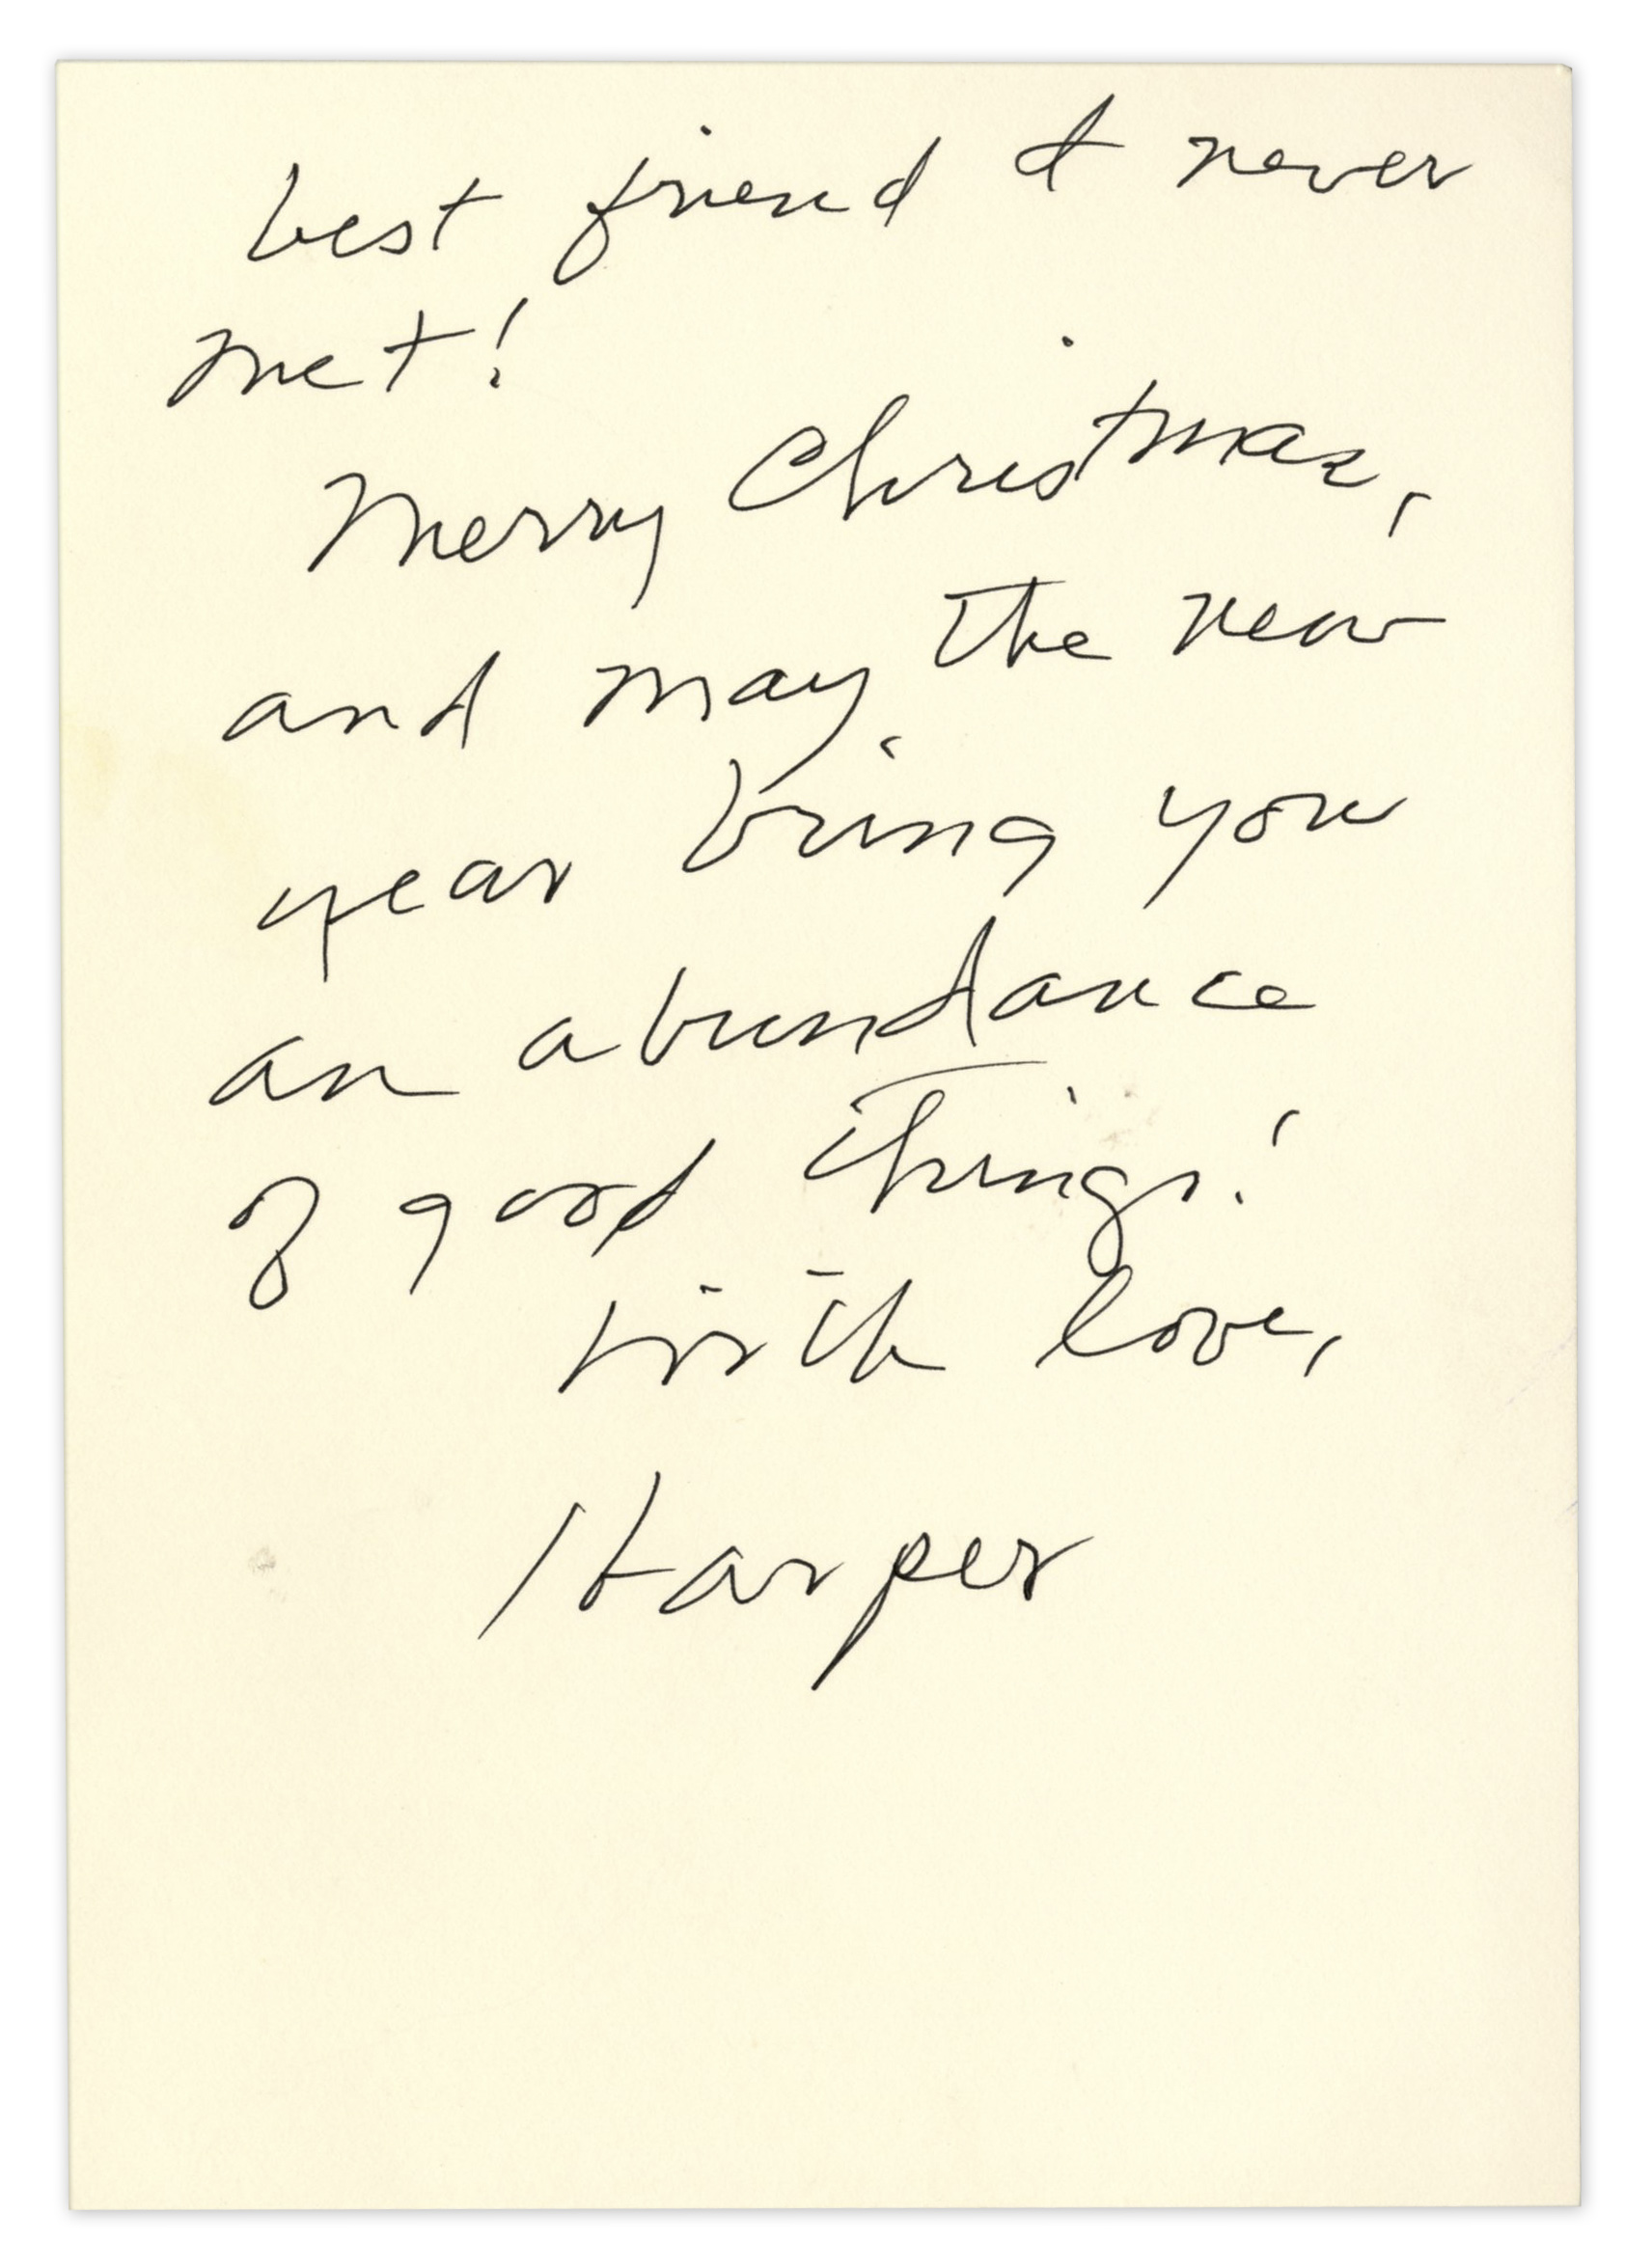 best friend I never
met!
Merry Christmas,
and may the new
year bring you
an abundance
of good things!
With love,
Harper